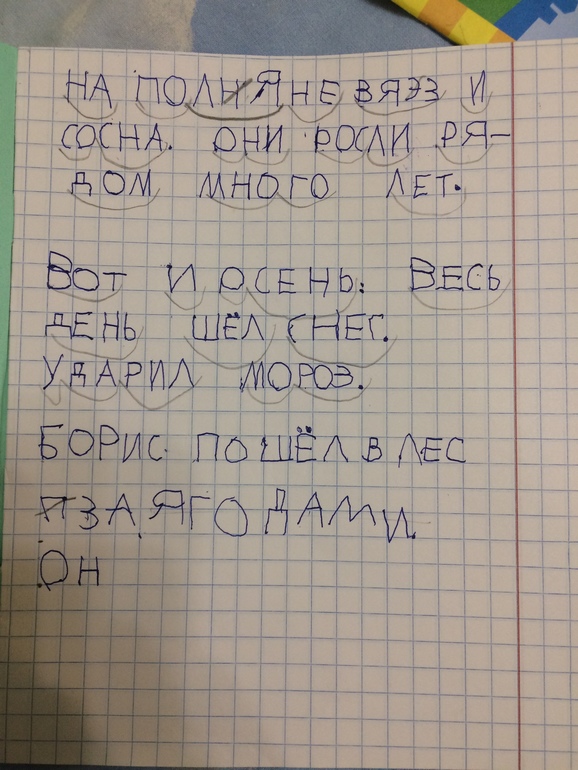 НА ПОЛНЯНЕ ВЯЭЗ И
СОСНА. ОНИ РОСЛИ РЯ-
ДОМ МНОГО ЛЕТ.
ВОТ И ОСЕНЬ. ВЕСЬ
ДЕНЬ ШЁЛ СНЕГ.
УДАРИЛ МОРОЗ.
БОРИС ПОШЁЛ В ЛЕС
ПЗА ЯГОДАМИ.
ОН